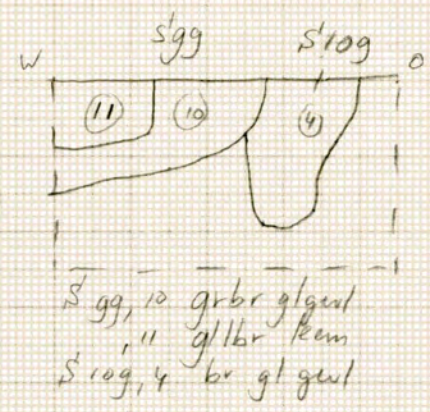 S'gg S'10g
W O
11 10 4
S gg, 10 grbr glgevl
, 11 gllbr leem
S 10g, 4 br gl gevl